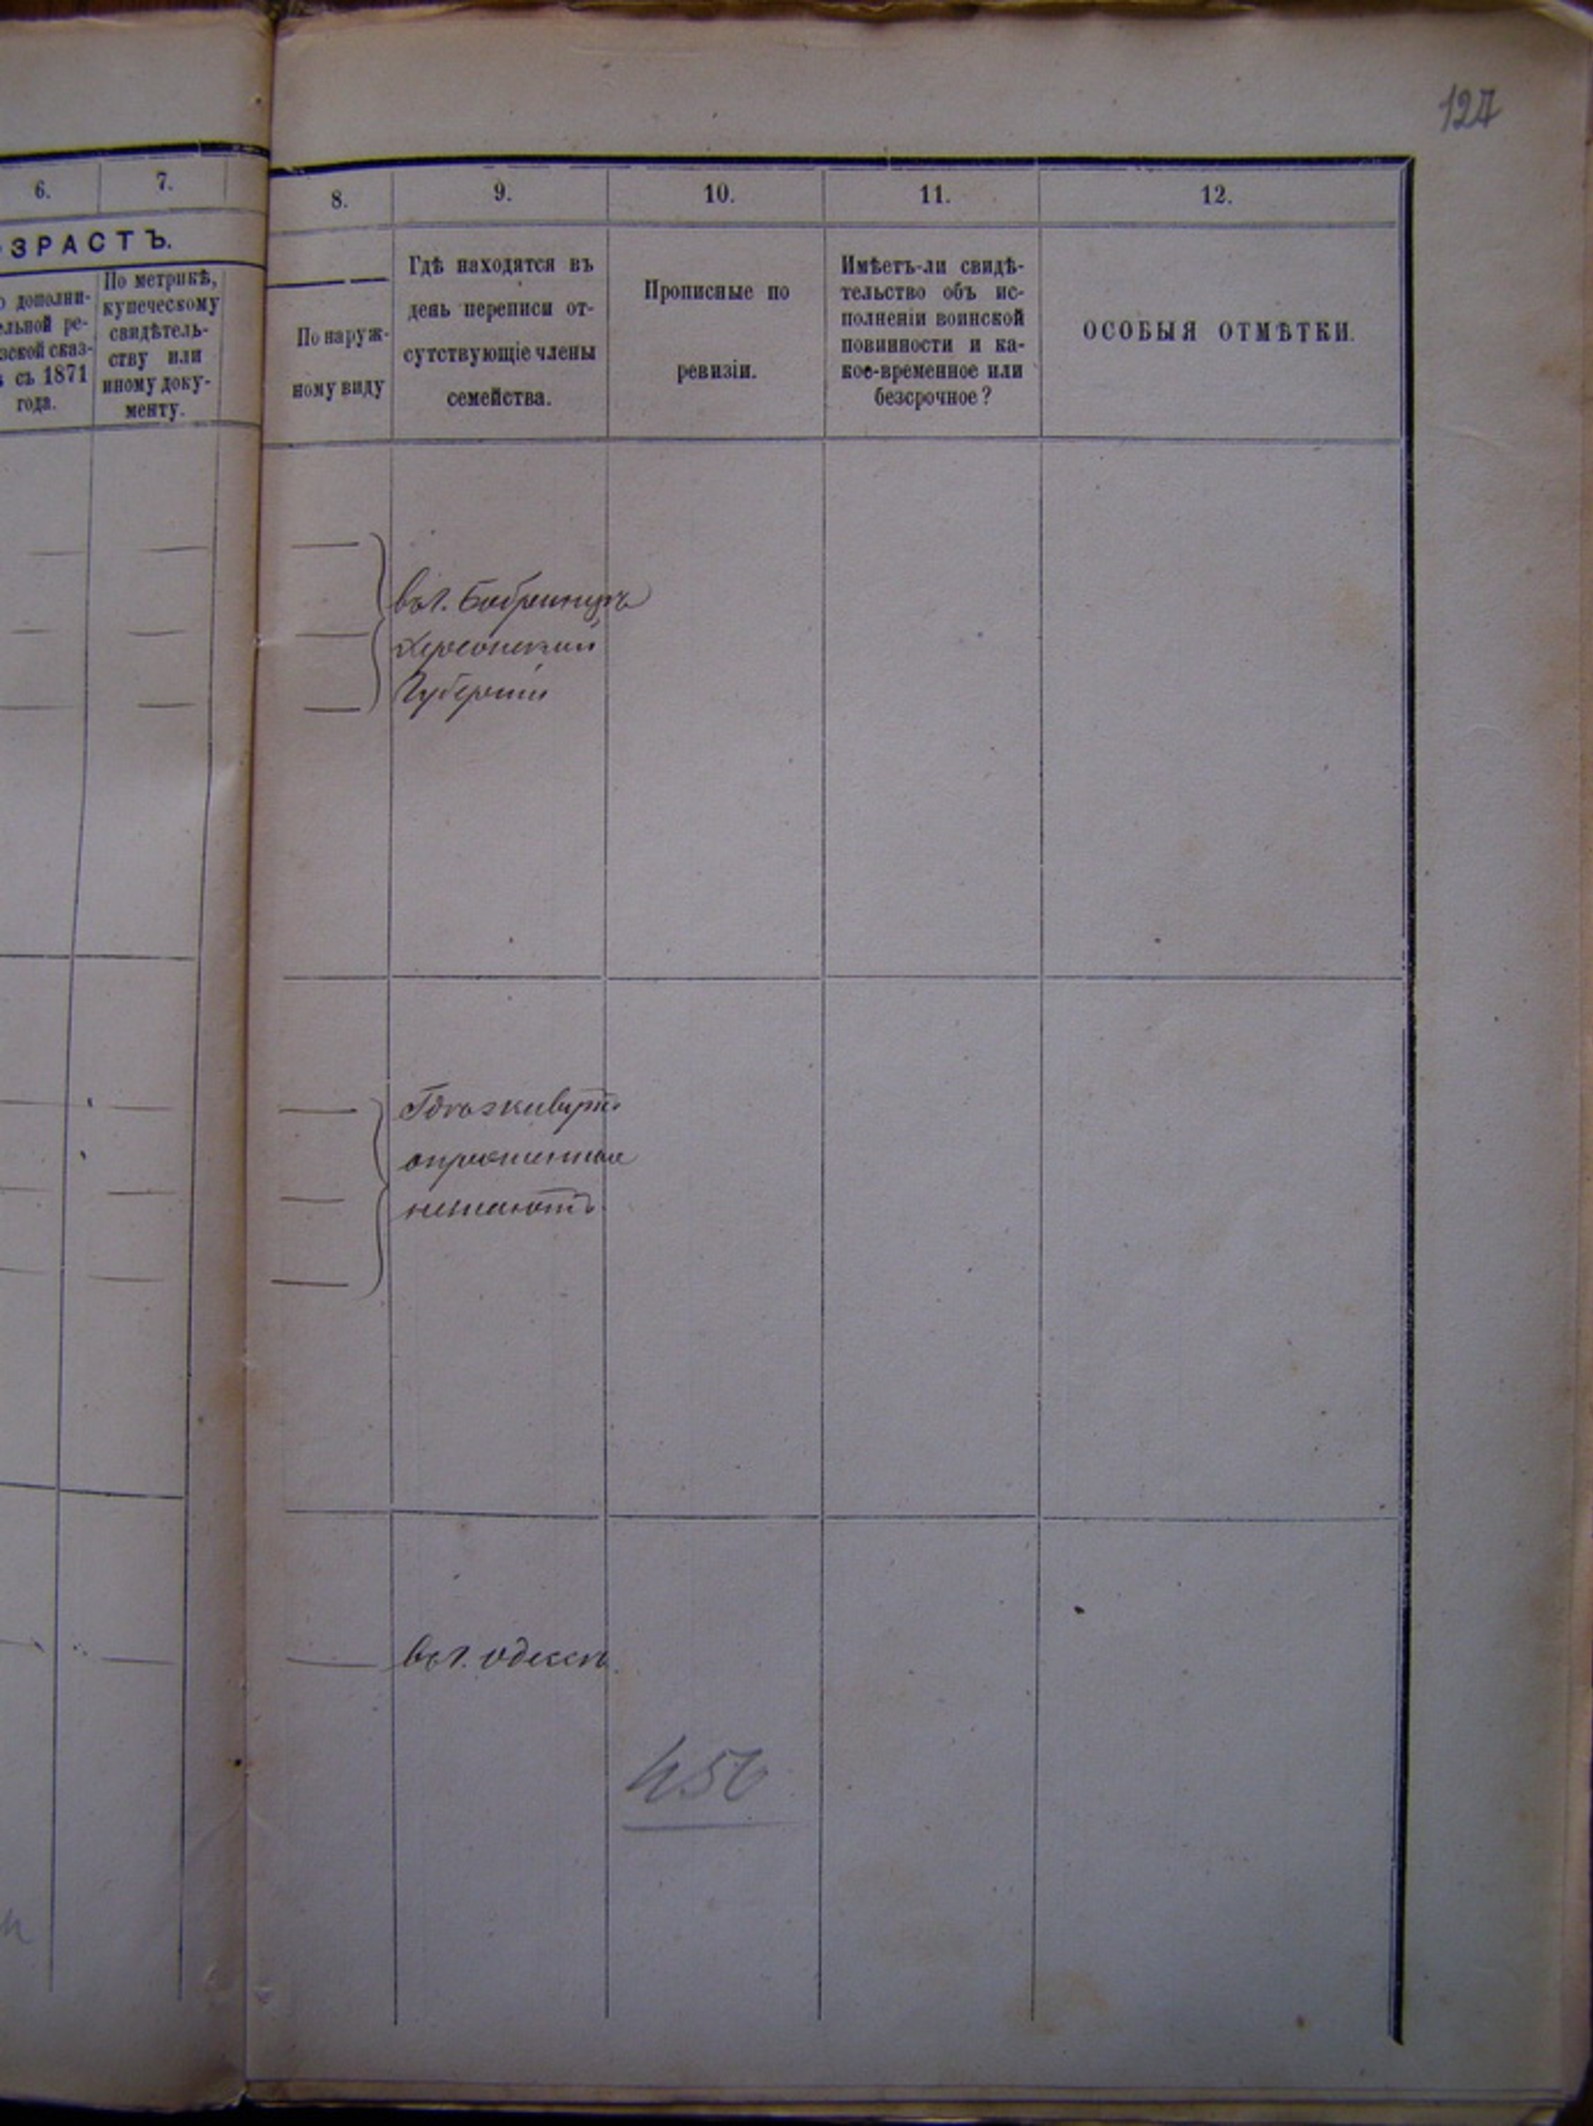 127
6.
7.
ОЗРАСТЪ.
о дополни-
ельной ре-
зской сказ-
ѣ съ 1871
года.
По метрикѣ,
купеческому
свидѣтель-
ству или
иному доку-
менту.
8.
9.
10.
11.
12.
По наруж-
ному виду
Гдѣ находятся въ
день переписи от-
сутствующіе члены
семейства.
Прописные по
ревизіи.
Имѣетъ-ли свидѣ-
тельство объ ис-
полненіи воинской
повинности и ка-
кое-временное или
безсрочное?
ОСОБЫЯ ОТМѢТКИ.
въ г. Бобринцѣ
Херсонской
Губерніи
Гдѣ живутъ
опрошенные
незнаютъ.
въ г. Одессѣ.
456